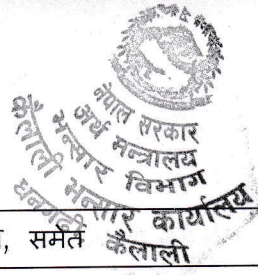 नेपाल सरकार
अर्थ मन्त्रालय
भन्सार विभाग
कैलाली भन्सार कार्यालय
धनगढी कैलाली
, समेत